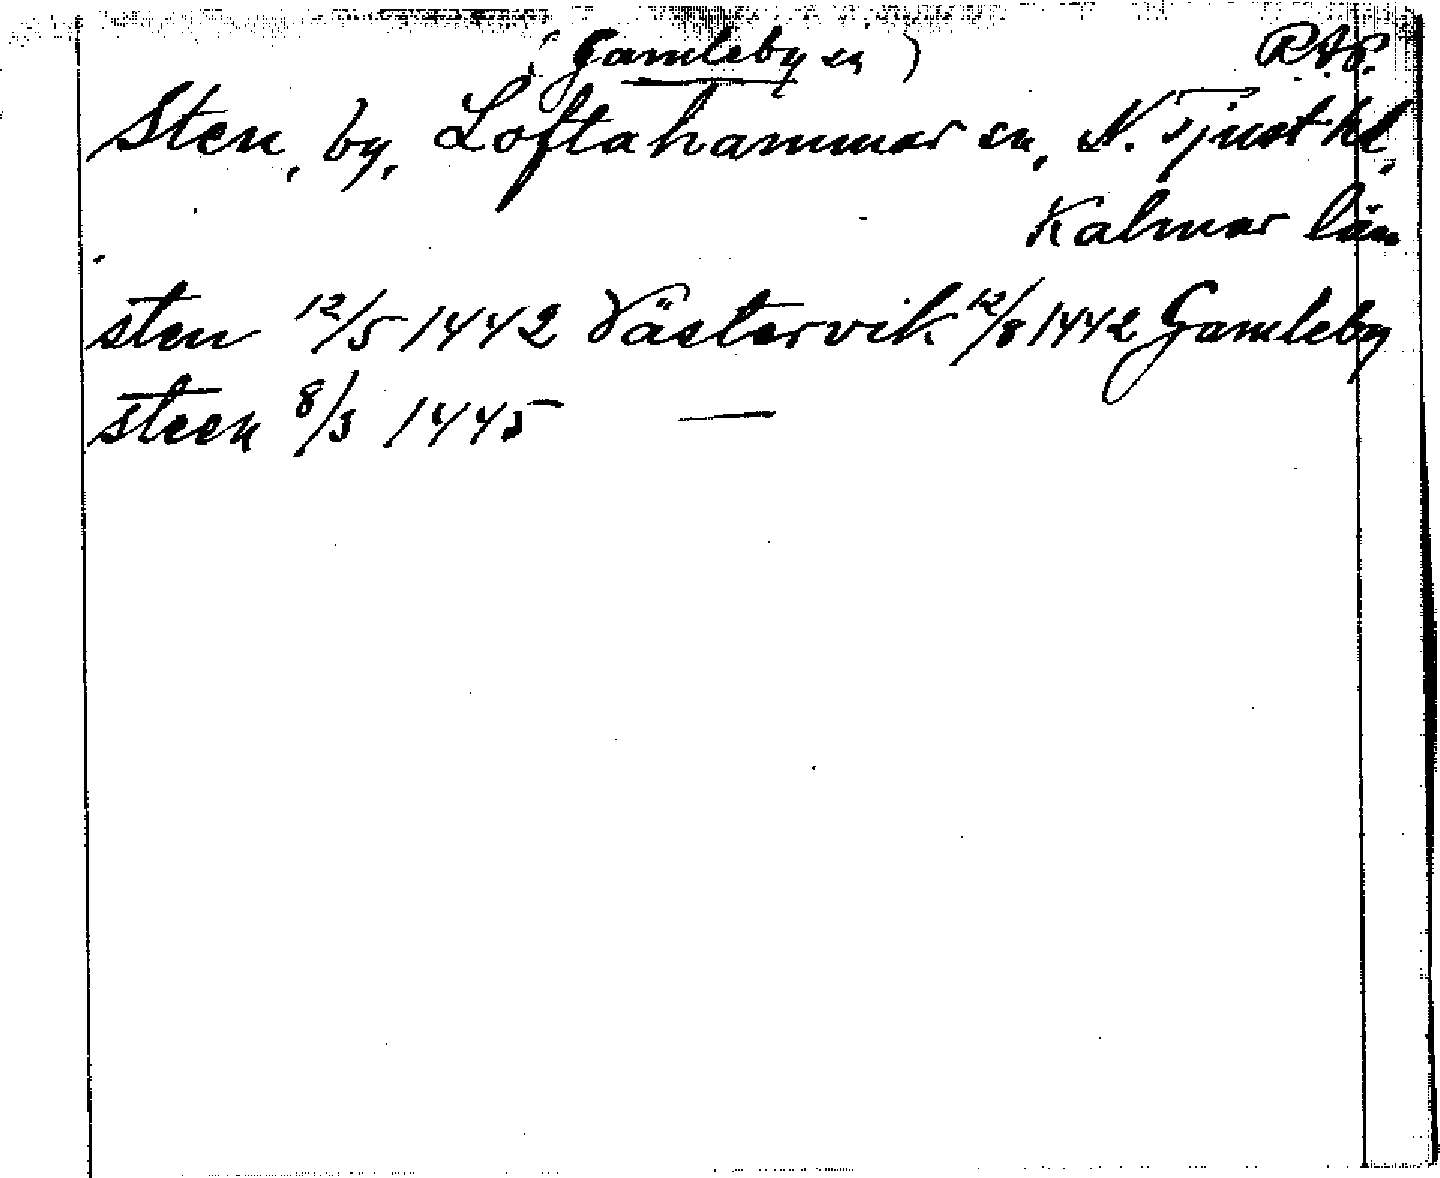 (Gamleby sn) R.A.P.
Sten, by, Loftahammar sn, N. Tjust hd,
Kalmar län
sten 12/5 1442 Västervik 12/8 1442 Gamleby
steen 8/3 1445 —